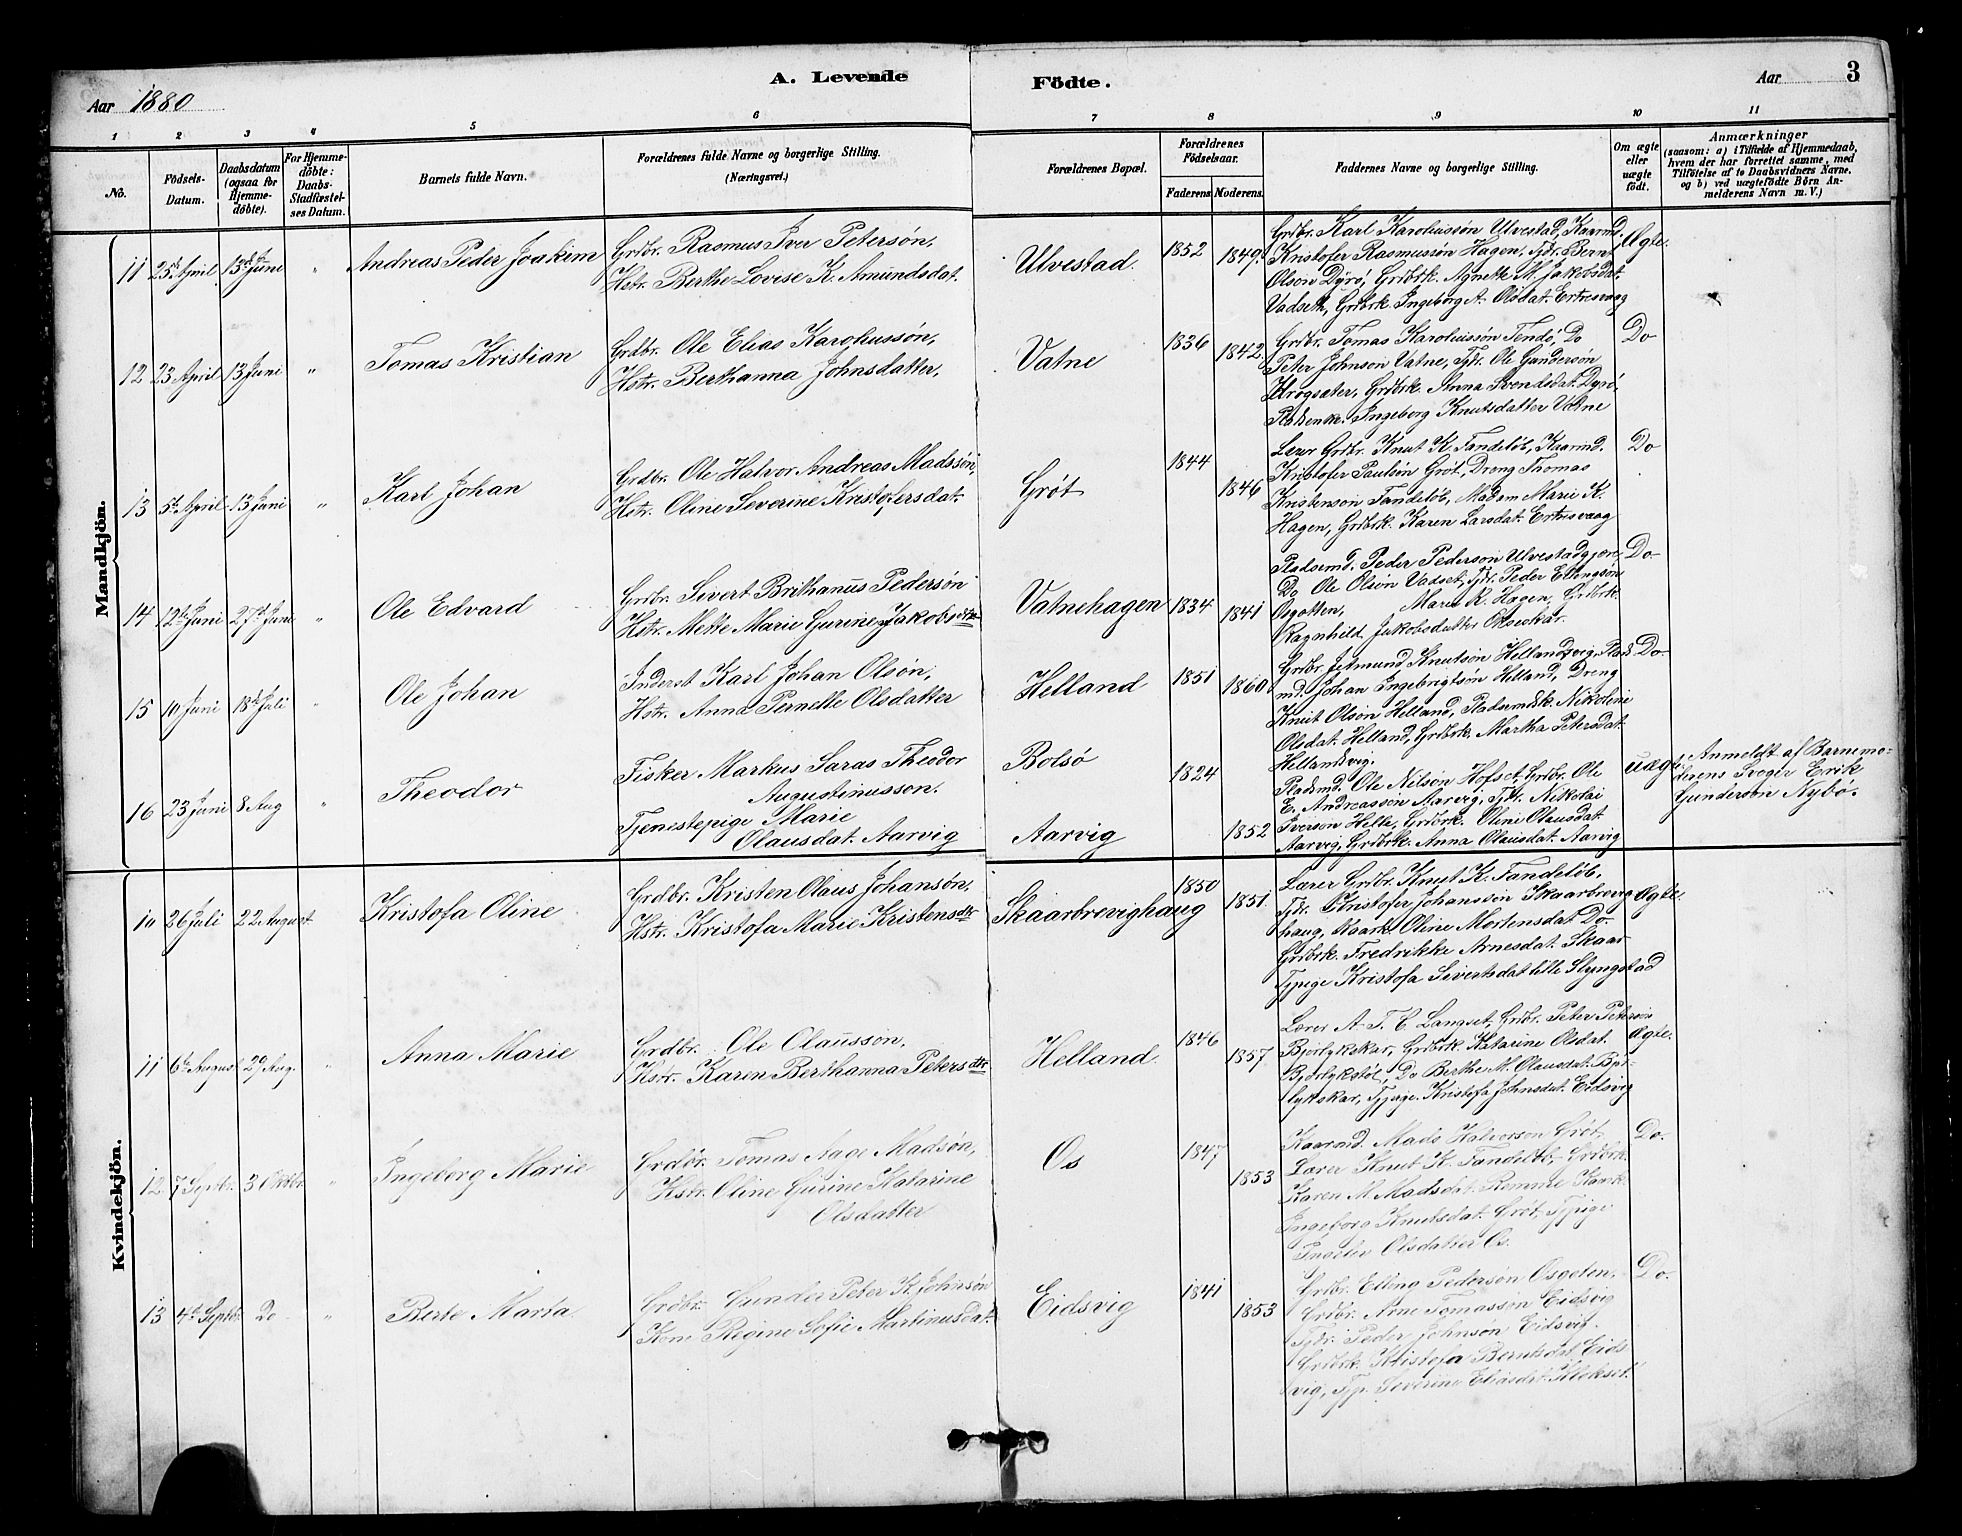 A. Levende Födte.
Aar 1880
Aar 3
1 2 3 4 5 6 7 8 9 10 11
No.
Födsels-Datum.
Daabsdatum (ogsaa for Hjemme-döbte).
For Hjemme-döbte: Daabs-Stadfæstel-ses Datum.
Barnets fulde Navn.
Forældrenes fulde Navne og borgerlige Stilling.
(Næringsvei.)
Forældrenes Bopæl.
Forældrenes Födselsaar.
Faderens Moderens.
Faddernes Navne og borgerlige Stilling.
Om ægte eller uægte födt.
Anmærkninger
(saasom: a) i Tilfælde af Hjemmedaab,
hvem der har forrettet samme, med
Tilföielse af to Daabsvidners Navne,
og b) ved uægtefödte Börn An-
melderens Navn m. V.)
Mandkjön.
11 25de April 13de Juni " Andreas Peder Joakim
Grdbr. Rasmus Iver Petersön,
Hstr. Berthe Lovise K. Amundsdat.
Ulvestad. 1852 1849.
Grdbr. Karl Karoliussön Ulvestad, Kaarmd. Ægte.
Kristofer Rasmussön Hagen, Fdr. Bernt
Olson Dyrö, Grdbrk. Agnette M. Jakobsdat.
Vadseth, Grdbrk. Ingeborg A. Olsdat. Ertresvaag
12 23 April 13 Juni " Tomas Kristian
Grdbr. Ole Elias Karoliussön,
Hstr. Berthanna Johnsdatter,
Vatne 1836 1842.
Grdbr. Tomas Karoliussön Tendö, Do Do
Peter Johnson Vatne, Fdr. Ole Gundersön
Krogsæter, Grdbrk. Anna Svendsdat. Dyrö,
Pladsenk. Ingeborg Knutsdatter Vatne
13 5te April 13 Juni " Karl Johan
Grdbr. Ole Halvor Andreas Madssön,
Hstr. Oline Severine Kristofersdat.
Gröt 1844 1846
Lærer Grdbr. Knut K. Tandelöb, Kaarmd. Do
Kristofer Paulsön Gröt, Dreng Thomas
Kristenson Tandelöb, Madam Marie K.
Hagen, Grdbrk. Karen Larsdat. Ertresvaag
14 12te Juni 27de Juni " Ole Edvard
Grdbr. Sivert Brithanus Pedersön
Hstr. Mette Marie Gurine Jakobsdtr
Vatnehagen 1834 1841
Pladsemd. Peder Pederson Ulvestadgjære, Do
Do Ole Olsön Vadset, Fdr. Peder Ellingsön
Osgotten, Maren K. Hagen, Grdbrk.
Ragnhild Jakobsdatter Okseskar.
15 10 Juni 18de Juli " Ole Johan
Inderst Karl Johan Olsön,
Hstr. Anna Pernelle Olsdatter
Helland 1851 1860
Grdbr. Jetmund Knutsön Hellandsvig, Plads- Do.
md. Johan Ingebrigtsön Helland, Dreng
Knut Olson Helland, Pladsemdsk. Nikoline
Olsdat. Helland, Grdbrk. Martha Petersdat.
Hellandsvig.
16 23 Juni 8 Aug " Theodor
Fisker Markus Saras Theodor
Augustinusson.
Tjenestepige Marie
Olausdat. Aarvig
Bolsö 1824
Aarvig 1852
Pladsmd. Ole Nilson Hofset, Grdbr. Ole uægte
E. Andreassön Aarvig, Fdr. Nikolai
Iverson Helle, Grdbrk. Oline Olausdat
Aarvig, Grdbrk. Anna Olausdat. Aarvig
Anmeldt af Barnemo-
derens Svoger Erik
Gunderson Nybö.
Kvindekjön.
10 26 Juli 22 August. Kristofa Oline
Grdbr. Kristen Olaus Johansön,
Hstr. Kristofa Marie Kristensdtr
Skaarbrevighaug 1850 1851.
Lærer Grdbr. Knut K. Tandelöb,
Fdr. Kristofer Johanssön Skaarbrevig- Ægte.
haug, Kaark. Oline Mortensdat Do
Grdbrk. Fredrikke Arnesdat. Skaar
Tjpige Kristofa Sivertsdat lille Slyngstad
11 6te August 29 Aug. " Anna Marie
Grdbr. Ole Olaussön,
Hstr. Karen Berthanna Petersdtr
Helland. 1846 1857.
Lærer A. T. E. Langset, Grdbr. Peter Petersön
Bjorlykskar, Grdbrk. Katarine Olsdat. Ægte.
Bjorlykstöl, Do Berthe M. Olausdat. Björ-
lykskar, Tjpige. Kristofa Johnsdat. Eidsvig
12 7 Septbr. 3 Oktbr. " Ingeberg Marie
Grdbr. Tomas Aage Madsön,
Hstr. Oline Gurine Katarine
Olsdatter
Os 1847 1853
Kaarmd. Mads Halvorson Gröt, Do.
Lærer Knut K. Tandelöb, Grdbrk.
Karen M. Madsdat. Remme, Kaark.
Ingeborg Knutsdat. Gröt, Tjpige
Ingeliv Olsdatter Os.
13 4de Septbr. Do " Berte Marta
Grdbr. Gunder Peter K. Johnsön
Kone Regine Sofie Martinusdat.
Eidsvig 1841 1853
Grdbr. Elling Pedersön Osgoten, Do.
Grdbr. Arne Tomassön Eidsvig
Fdr. Peder Johnsön Eidsvig.
Grdbrk. Kristofa Berntsdat. Eids
vig, Tjp. Severine Eliasdat. Klokset.